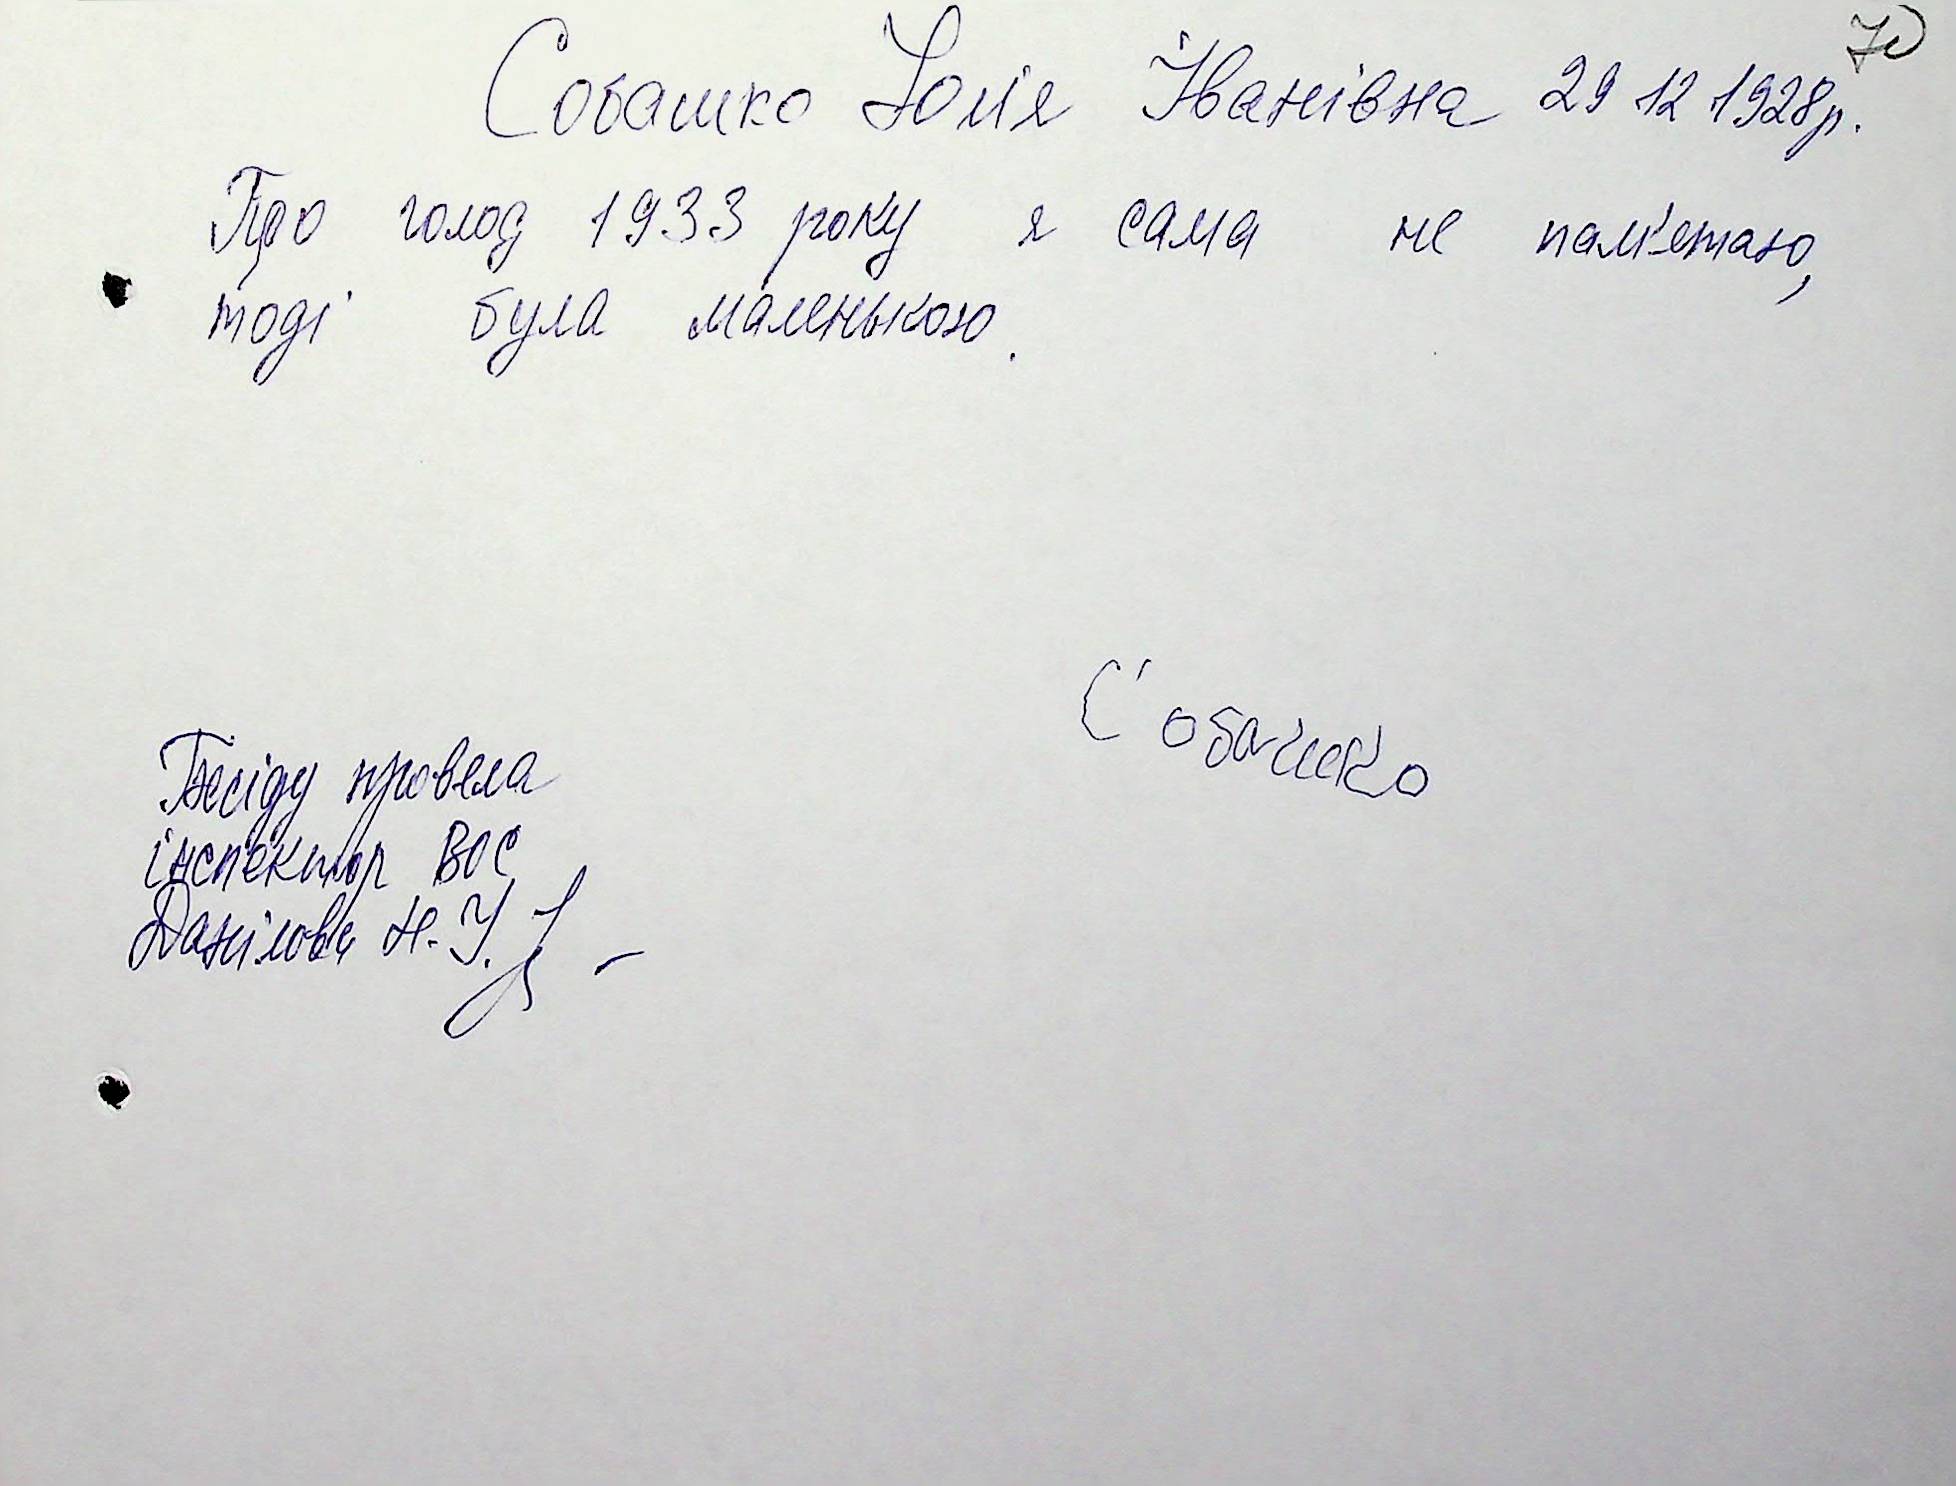 70
Собашко Юлія Іванівна 29 12 1928р.
Про голод 1933 року я сама не пам'ятаю,
тоді була маленькою.
Собашко
Бесіду провела
інспектор ВОС
Данілова Н. У.